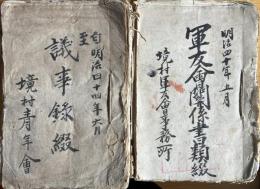 明治四十年五月
軍友會關係書類綴
境村軍友會事務所
自明治四十四年六月
至
議事録綴
境村青年會